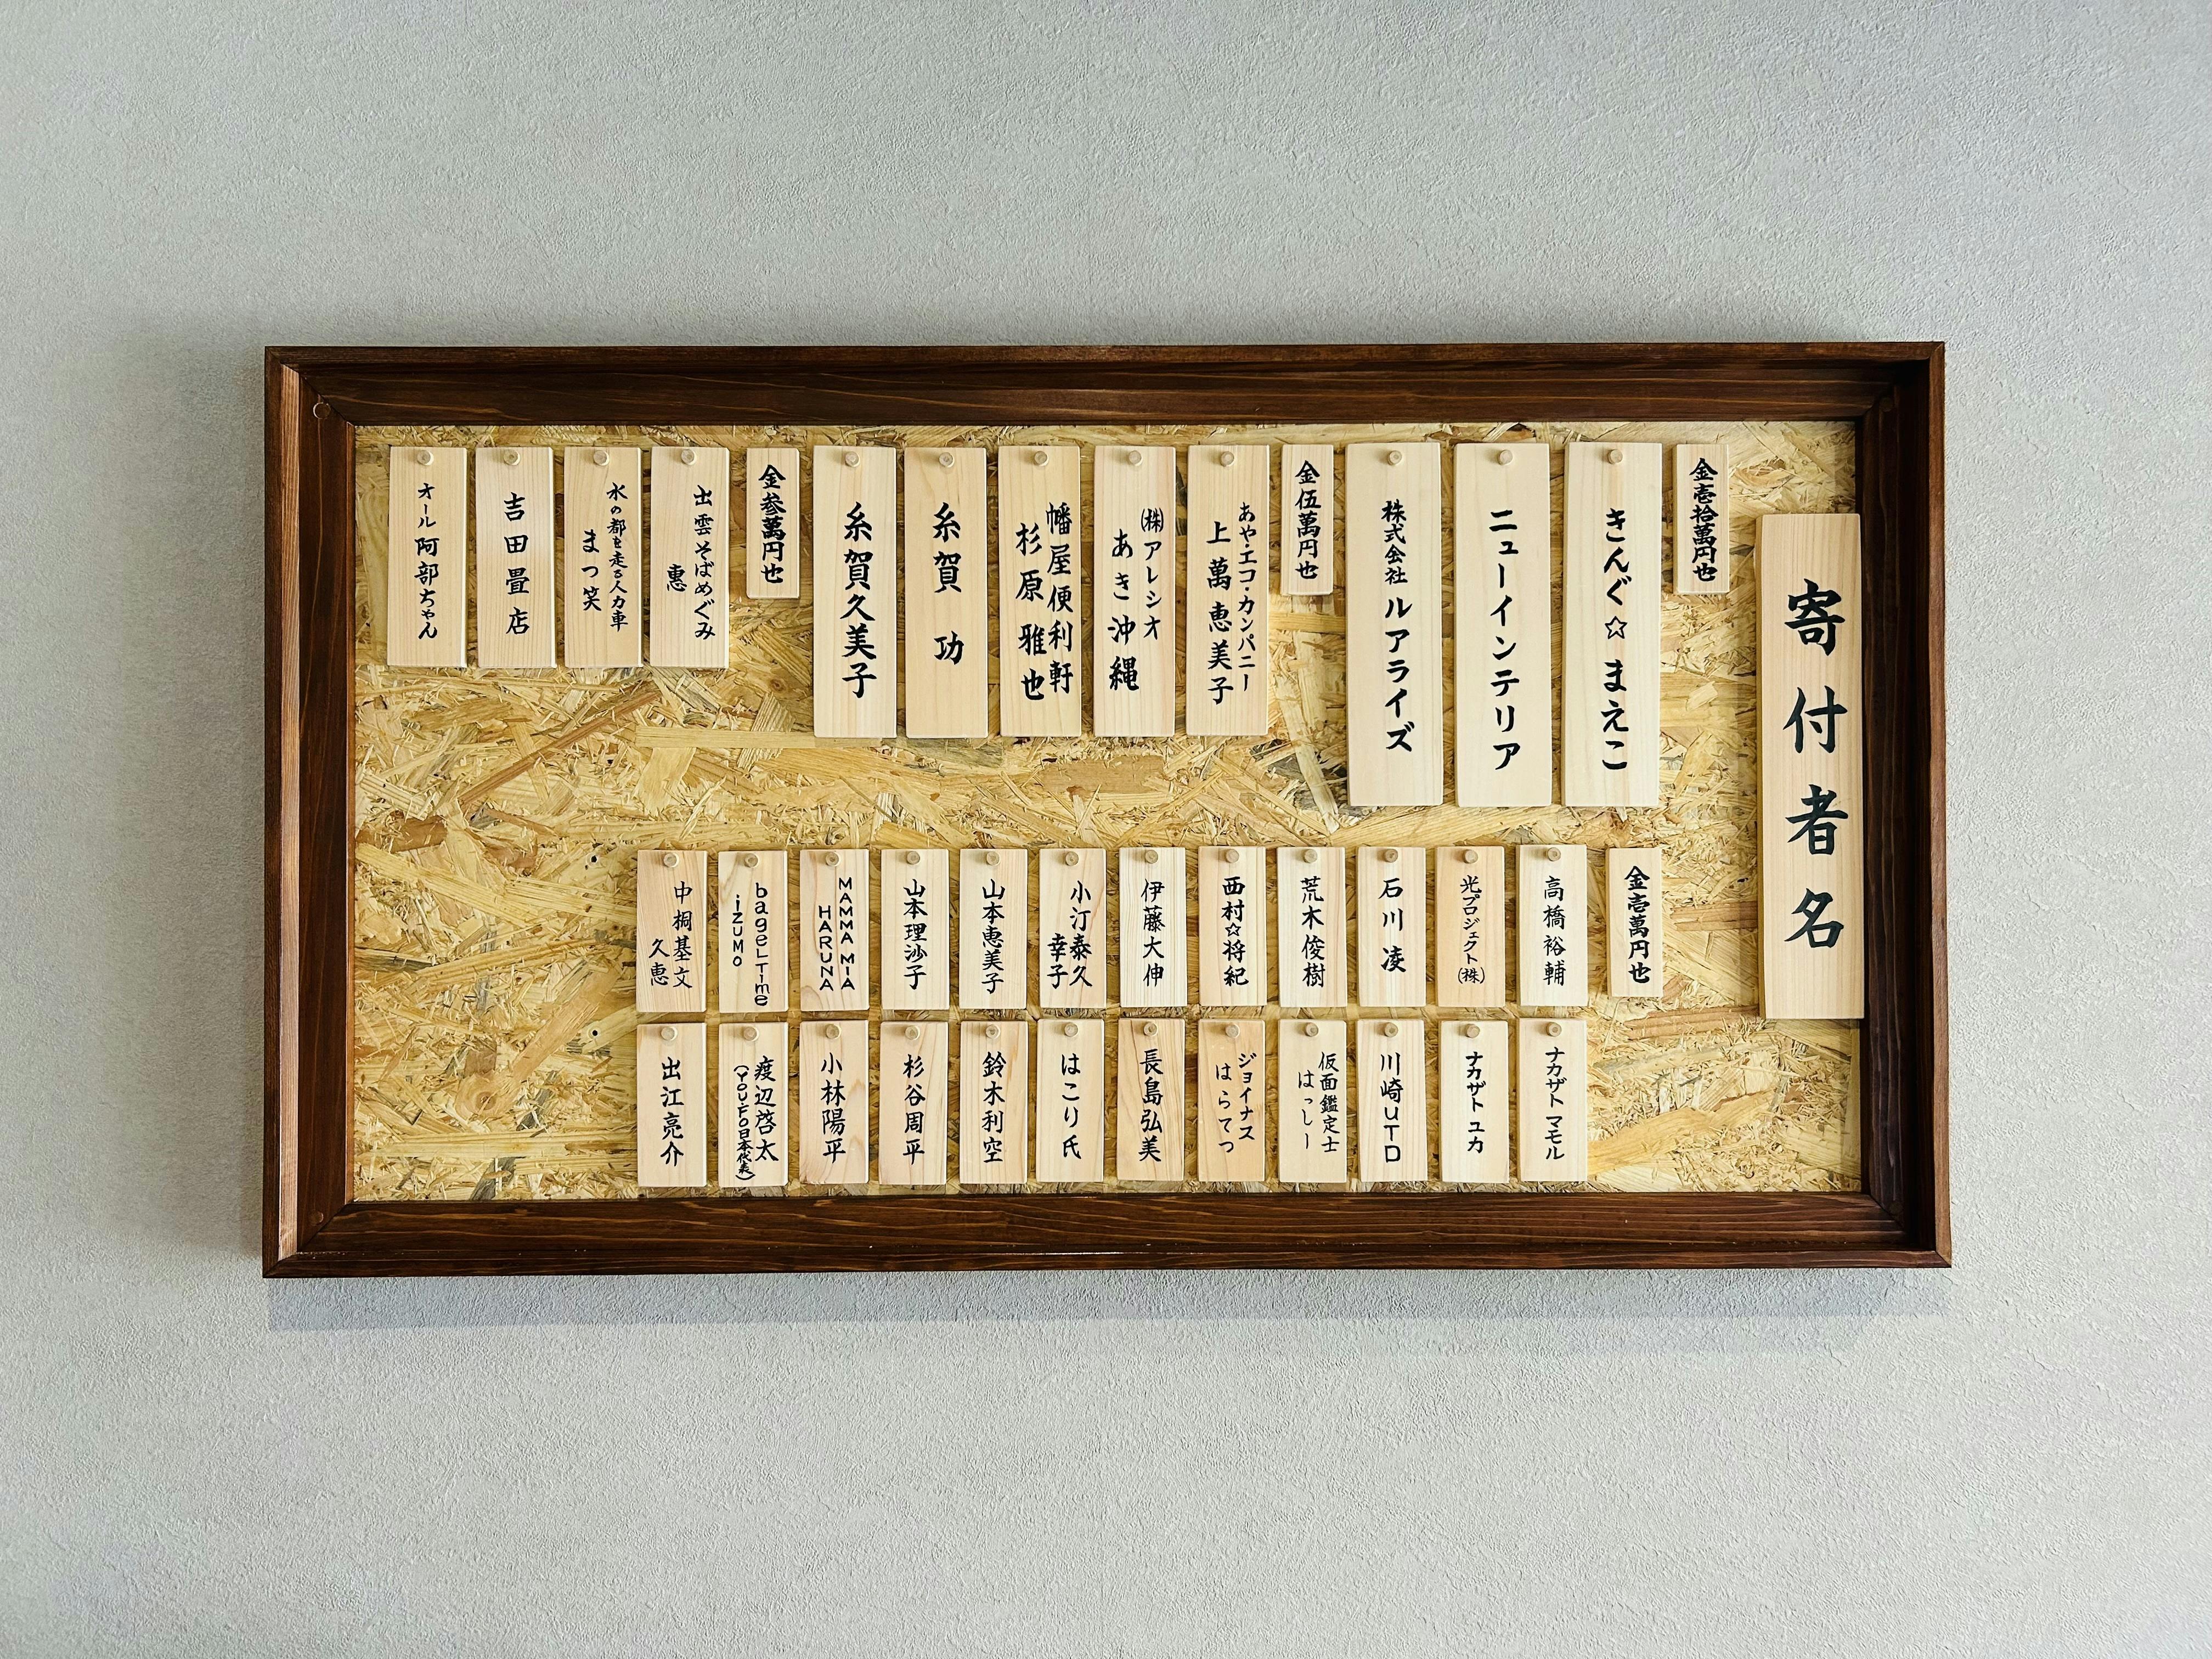 寄付者名
金壱拾萬円也
きんぐ☆まえこ
ニューインテリア
株式会社 ルアライズ
金伍萬円也
あや・エコ・カンパニー
上萬恵美子
㈱アレシオ
あき沖縄
幡屋便利軒
杉原雅也
糸賀 功
糸賀久美子
金参萬円也
出雲そばめぐみ
恵
水の都を走る人力車
まつ笑
吉田畳店
オール阿部ちゃん
金壱萬円也
高橋裕輔
光プロジェクト㈱
石川凌
荒木俊樹
西村☆将紀
伊藤大伸
小汀泰久
幸子
山本恵美子
山本理沙子
MAMMA MIA
HARUNA
bageLTime
iZUMO
中桐基文
久恵
ナカザト マモル
ナカザト ユカ
川崎UTD
仮面鑑定士
はっしー
ジョイナス
はらてつ
長島弘美
はこり氏
鈴木利空
杉谷周平
小林陽平
渡辺啓太
(YOU.FO日本代表)
出江亮介